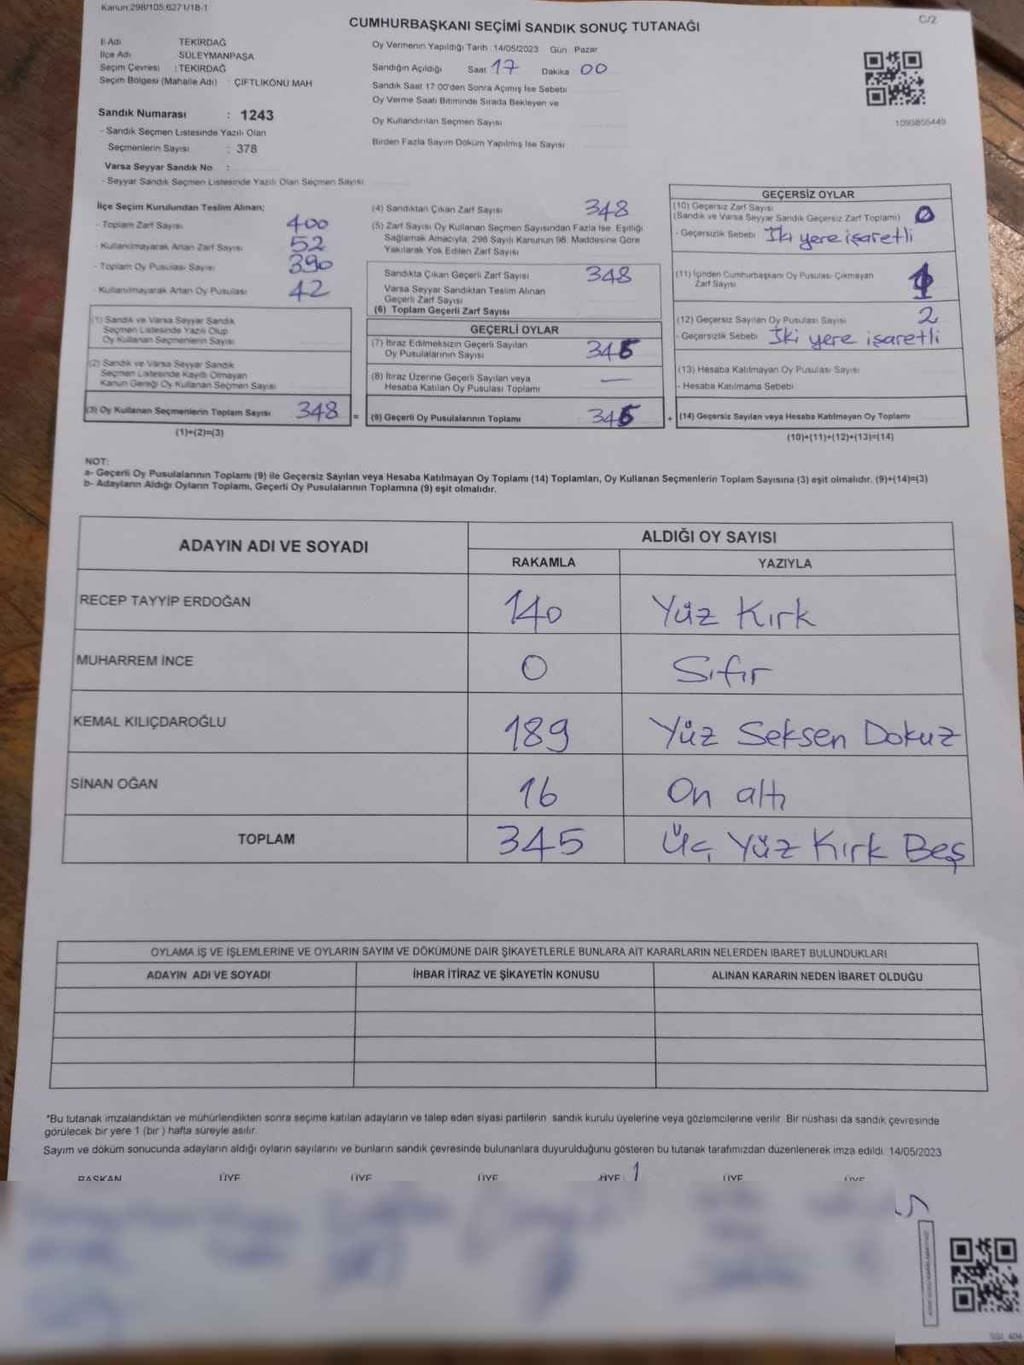 Kanun:298/105,6271/18-1
C/2
CUMHURBAŞKANI SEÇİMİ SANDIK SONUÇ TUTANAĞI
İl Adı TEKİRDAĞ
İlçe Adı SÜLEYMANPAŞA
Seçim Çevresi : TEKİRDAĞ
Seçim Bölgesi (Mahalle Adı) : ÇİFTLİKÖNÜ MAH
Oy Vermenin Yapıldığı Tarih : 14/05/2023 Gün Pazar
Sandığın Açıldığı Saat 17 Dakika 00
Sandık Saat 17:00'den Sonra Açılmış İse Sebebi
Oy Verme Saati Bitiminde Sırada Bekleyen ve
Oy Kullandırılan Seçmen Sayısı
Birden Fazla Sayım Döküm Yapılmış İse Sayısı
1093855449
Sandık Numarası : 1243
- Sandık Seçmen Listesinde Yazılı Olan
Seçmenlerin Sayısı : 378
Varsa Seyyar Sandık No :
- Seyyar Sandık Seçmen Listesinde Yazılı Olan Seçmen Sayısı
İlçe Seçim Kurulundan Teslim Alınan;
- Toplam Zarf Sayısı 400
- Kullanılmayarak Artan Zarf Sayısı 52
- Toplam Oy Pusulası Sayısı 390
- Kullanılmayarak Artan Oy Pusulası 42
(1) Sandık ve Varsa Seyyar Sandık
Seçmen Listesinde Yazılı Olup
Oy Kullanan Seçmenlerin Sayısı
(2) Sandık ve Varsa Seyyar Sandık
Seçmen Listesinde Kayıtlı Olmayan
Kanun Gereği Oy Kullanan Seçmen Sayısı
(3) Oy Kullanan Seçmenlerin Toplam Sayısı 348 =
(1)+(2)=(3)
(4) Sandıktan Çıkan Zarf Sayısı 348
(5) Zarf Sayısı Oy Kullanan Seçmen Sayısından Fazla İse, Eşitliği
Sağlamak Amacıyla, 298 Sayılı Kanunun 98. Maddesine Göre
Yakılarak Yok Edilen Zarf Sayısı
Sandıkta Çıkan Geçerli Zarf Sayısı 348
Varsa Seyyar Sandıktan Teslim Alınan
Geçerli Zarf Sayısı
(6) Toplam Geçerli Zarf Sayısı
GEÇERLİ OYLAR
(7) İtiraz Edilmeksizin Geçerli Sayılan
Oy Pusulalarının Sayısı 345
(8) İtiraz Üzerine Geçerli Sayılan veya
Hesaba Katılan Oy Pusulası Toplamı —
(9) Geçerli Oy Pusulalarının Toplamı 345 +
GEÇERSİZ OYLAR
(10) Geçersiz Zarf Sayısı
(Sandık ve Varsa Seyyar Sandık Geçersiz Zarf Toplamı) 0
- Geçersizlik Sebebi İki yere işaretli
(11) İçinden Cumhurbaşkanı Oy Pusulası Çıkmayan
Zarf Sayısı 1
(12) Geçersiz Sayılan Oy Pusulası Sayısı 2
- Geçersizlik Sebebi İki yere işaretli
(13) Hesaba Katılmayan Oy Pusulası Sayısı
- Hesaba Katılmama Sebebi
(14) Geçersiz Sayılan veya Hesaba Katılmayan Oy Toplamı
(10)+(11)+(12)+(13)=(14)
NOT:
a- Geçerli Oy Pusulalarının Toplamı (9) ile Geçersiz Sayılan veya Hesaba Katılmayan Oy Toplamı (14) Toplamları, Oy Kullanan Seçmenlerin Toplam Sayısına (3) eşit olmalıdır. (9)+(14)=(3)
b- Adayların Aldığı Oyların Toplamı, Geçerli Oy Pusulalarının Toplamına (9) eşit olmalıdır.
ADAYIN ADI VE SOYADI ALDIĞI OY SAYISI
RAKAMLA YAZIYLA
RECEP TAYYİP ERDOĞAN 140 Yüz Kırk
MUHARREM İNCE 0 Sıfır
KEMAL KILIÇDAROĞLU 189 Yüz Seksen Dokuz
SİNAN OĞAN 16 On altı
TOPLAM 345 Üç Yüz Kırk Beş
OYLAMA İŞ VE İŞLEMLERİNE VE OYLARIN SAYIM VE DÖKÜMÜNE DAİR ŞİKAYETLERLE BUNLARA AİT KARARLARIN NELERDEN İBARET BULUNDUKLARI
ADAYIN ADI VE SOYADI İHBAR İTİRAZ VE ŞİKAYETİN KONUSU ALINAN KARARIN NEDEN İBARET OLDUĞU
*Bu tutanak imzalandıktan ve mühürlendikten sonra seçime katılan adayların ve talep eden siyasi partilerin sandık kurulu üyelerine veya gözlemcilerine verilir. Bir nüshası da sandık çevresinde
görülecek bir yere 1 (bir) hafta süreyle asılır.
Sayım ve döküm sonucunda adayların aldığı oyların sayılarını ve bunların sandık çevresinde bulunanlara duyurulduğunu gösteren bu tutanak tarafımızdan düzenlenerek imza edildi. 14/05/2023
BAŞKAN ÜYE ÜYE ÜYE ÜYE ÜYE ÜYE